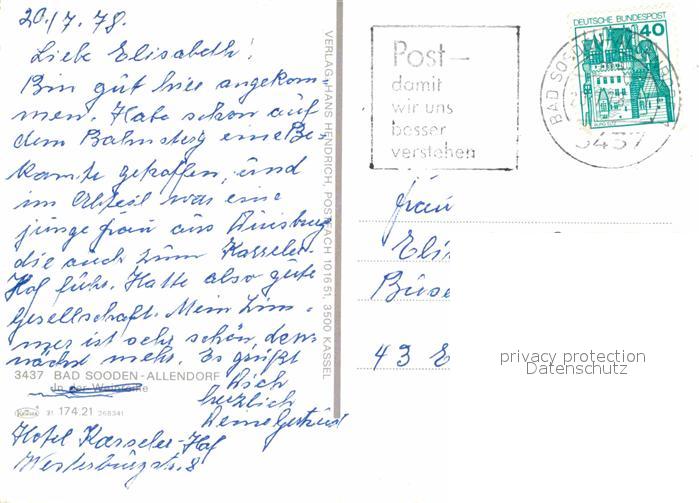 20./7.78.
Liebe Elisabeth!
Bin gut hier angekom-
men. Habe schon auf
dem Bahnsteig eine Be-
kannte getroffen, und
im Abteil war eine
junge Frau aus Duisburg
die auch zum Kasseler-
Hof fuhr. Hatte also gute
Gesellschaft. Mein Zim-
mer ist sehr schön, dem-
nächst mehr. Es grüßt
Dich
herzlich
Deine Gertrud
Hotel Kasseler-Hof
Westerburgstr. 8
3437 BAD SOODEN-ALLENDORF
In der
31 174.21 268341
VERLAG HANS HENDRICH, POSTFACH 101651, 3500 KASSEL
Post-
damit
wir uns
besser
verstehen
DEUTSCHE BUNDESPOST
40
BAD SOODEN
3437
Frau
Eli
Büse
43 E
privacy protection
Datenschutz